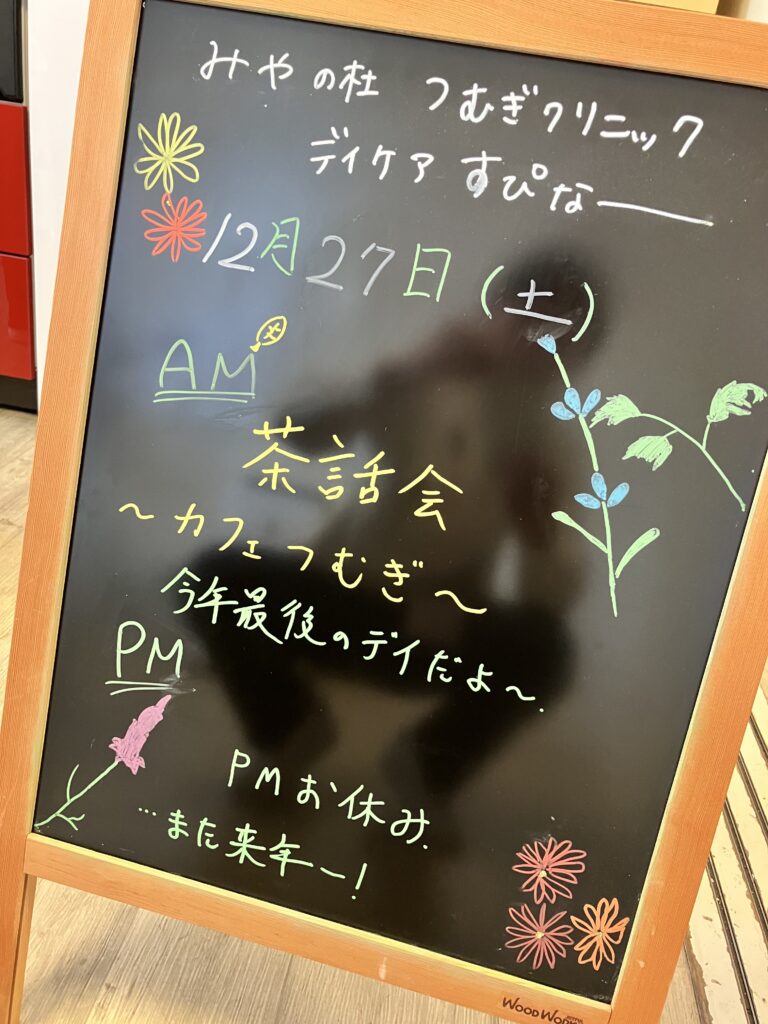 みやの杜 つむぎクリニック
デイケア すぴなー
12月27日(土)
AM
茶話会
～カフェつむぎ～
今年最後のデイだよ～.
PM
PMお休み.
…また来年ー!